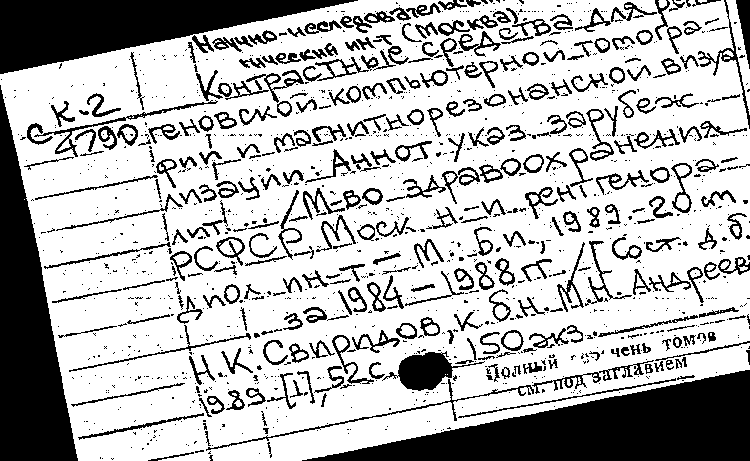 Научно-исследовательский
гический ин-т (Москва).
Контрастные средства для рен
с К-2
4790
геновской компьютерной томогра-
фии и магнитнорезонансной визуа-
лизации: Аннот. указ. зарубеж
лит... /М-во здравоохранения
РСФСР, Моск н.-и. рентгенора-
диол. ин-т - М.: Б.и., 1989.-20 см.
... за 1984 - 1988 гг. / [Сост. д.б.
Н.К. Свиридов, к.б.н. М.Н. Андреев
1989. [1], 52 с. 150 экз.
Полный перечень томов
см. под заглавием